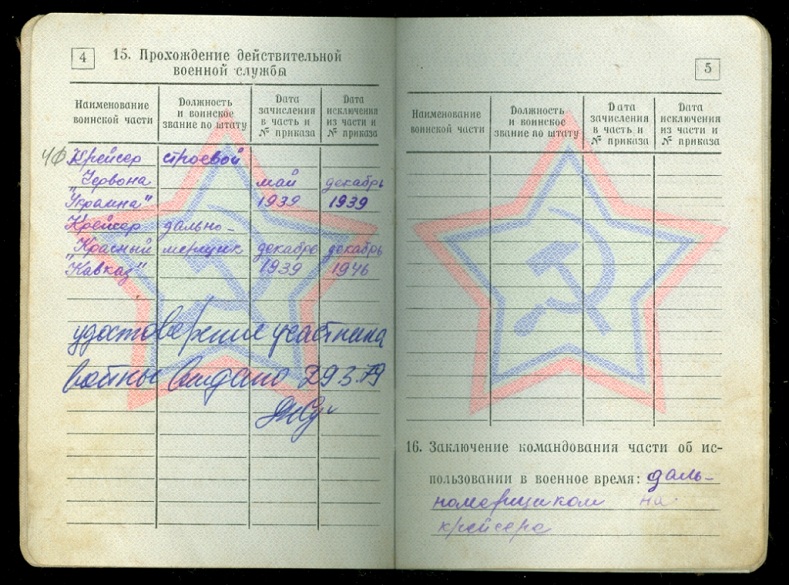 4
15. Прохождение действительной
военной службы
Наименование
воинской части
Должность
и воинское
звание по штату
Дата
зачисления
в часть и
№ приказа
Дата
исключения
из части и
№ приказа
ЧФ Крейсер строевой
"Червона май декабрь
Украина" 1939 1939
Крейсер дально-
"Красный мерщик декабрь декабрь
Кавказ" 1939 1946
удостоверение участника
войны выдано 29.3.79
5
Наименование
воинской части
Должность
и воинское
звание по штату
Дата
зачисления
в часть и
№ приказа
Дата
исключения
из части и
№ приказа
16. Заключение командования части об ис-
пользовании в военное время: даль-
номерщиком на
крейсере